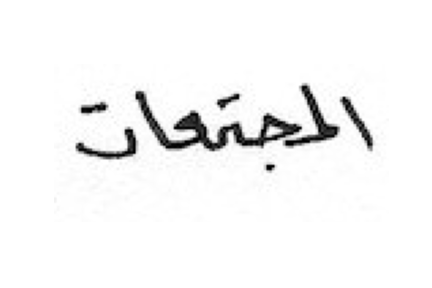 المجتمعات